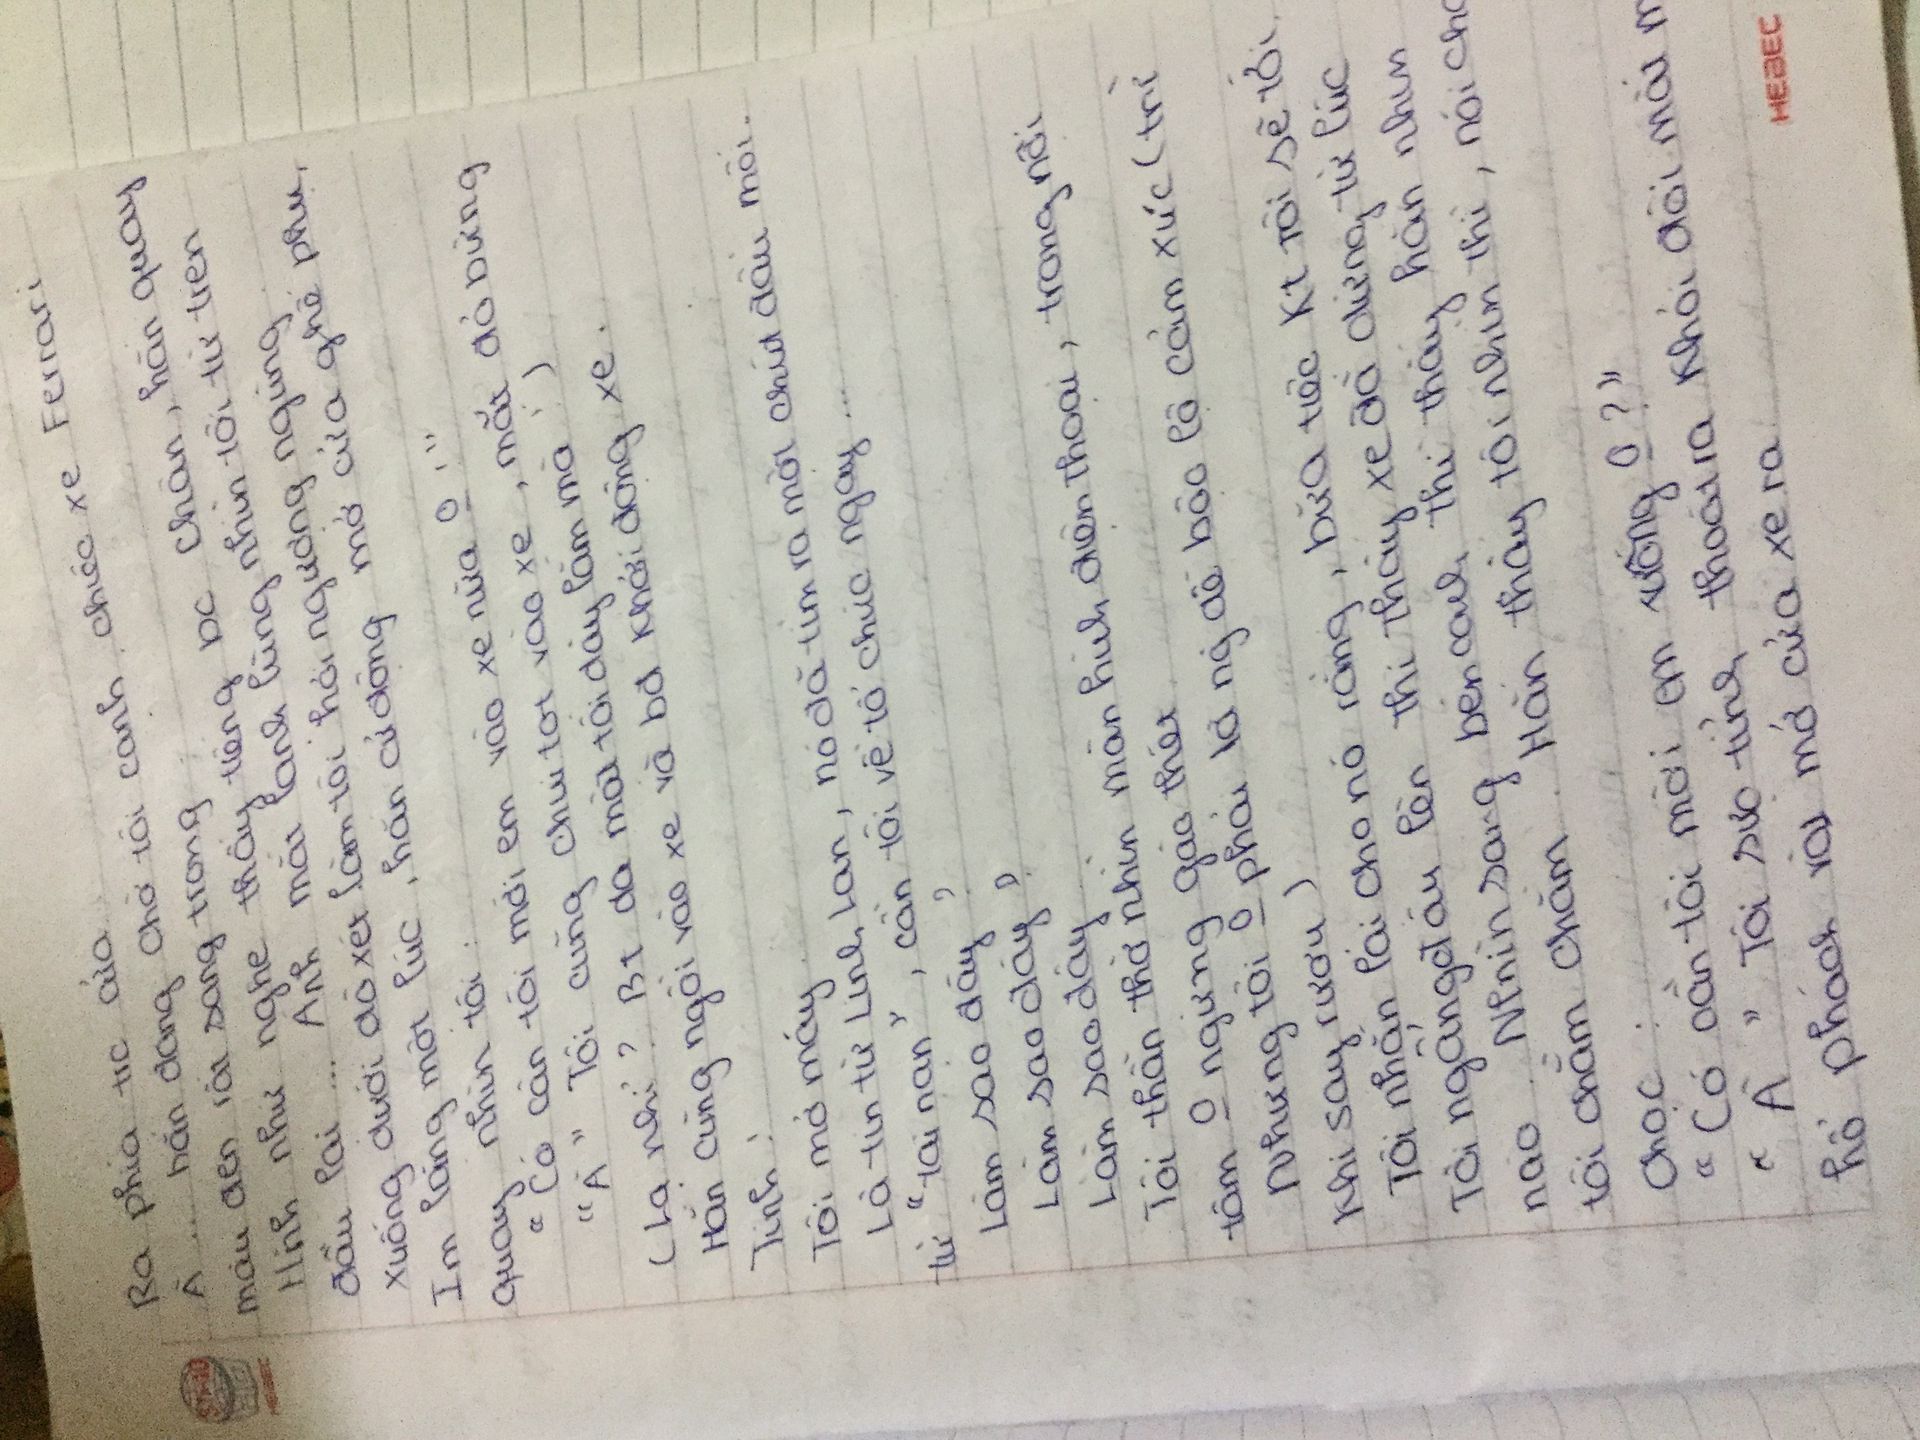 Ra phía trc cửa...
À ... hắn đang chờ tôi cạnh chiếc xe Ferrari
màu đen rất sang trọng
Hình như nghe thấy tiếng bc chân, hắn quay
đầu lại .... Ánh mắt lạnh lùng nhìn tôi từ trên
xuống dưới dò xét làm tôi hơi ngượng ngùng
Im lặng một lúc, hắn cử động mở cửa ghế phụ,
quay nhìn tôi :
"Có cần tôi mời em vào xe nữa O."
"À" Tôi cũng chui tọt vào xe, mắt đỏ bừng
(Lạ nhỉ? Bt da mặt tôi dày lắm mà )
Hắn cũng ngồi vào xe và bd khởi động xe.
Tinh :
Tôi mở máy
Là tin từ Linh Lan, nó đã tìm ra một chút dấu mối.
từ "tai nạn", cần tôi về tổ chức ngay ...
Làm sao đây ?
Làm sao đây ?
Làm sao đây
Tôi thẫn thờ nhìn màn hình điện thoại, trong nội
tâm O ngừng gào thét
Nhưng tôi O phải là ng dễ bộc lộ cảm xúc (trừ
khi say rượu)
Tôi nhắn lại cho nó rằng, bữa tiệc kt tôi sẽ tới.
Tôi ngẩng đầu lên thì thấy xe đã dừng từ lúc
nào .. Nhìn sang bên cạnh thì thấy hắn nhìn
tôi chằm chằm Hắn thấy tôi nhìn thì, nói
chọc :
"Có cần tôi mời em xuống O ?"
"À" Tôi sực tỉnh thoát ra khỏi đôi mắt
hổ phách rồi mở cửa xe ra
HEBEC